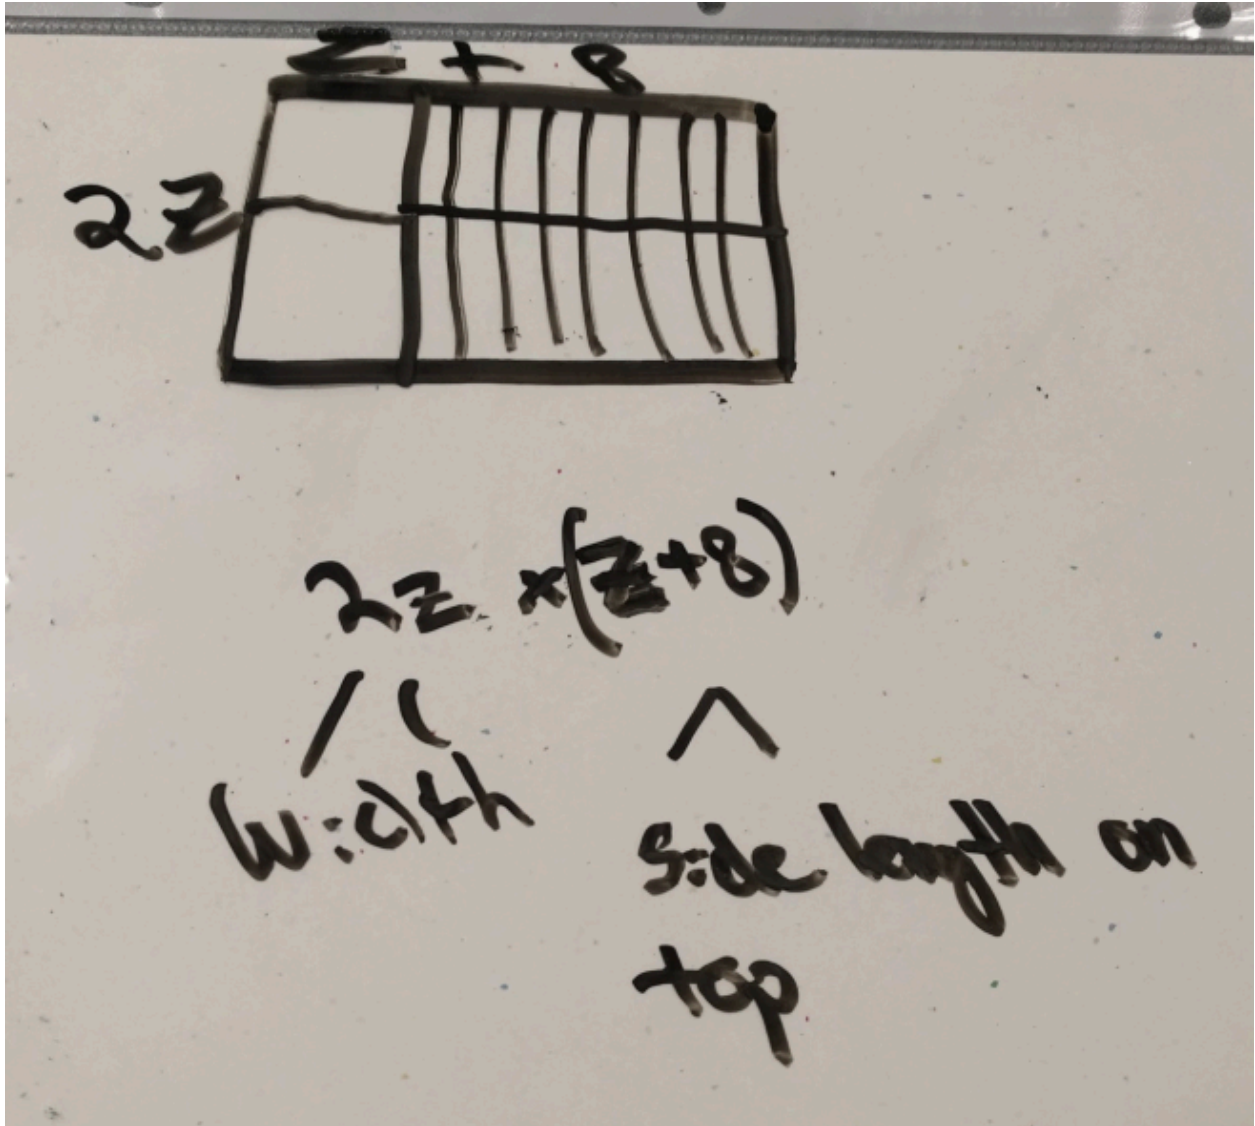 z + 8
2z
2z x(z+8)
width
side length on
top